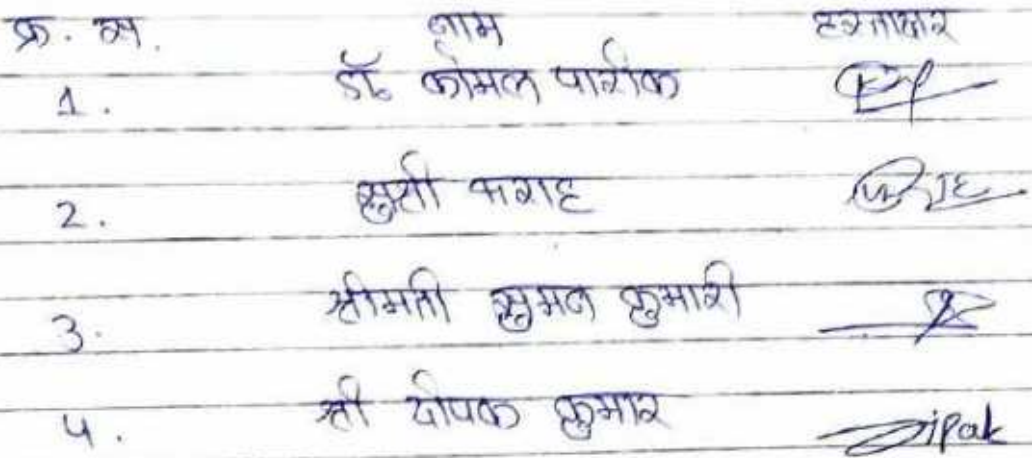 क्र. स. नाम हस्ताक्षर
1. डॉ कोमल पारीक
2. सुश्री
3. श्रीमती सुमन कुमारी
4. श्री दीपक कुमार Dipak